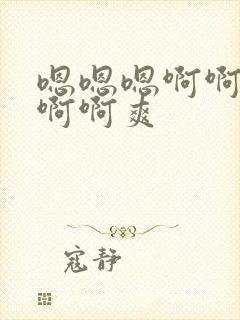 嗯嗯嗯啊啊
啊啊爽
寇静